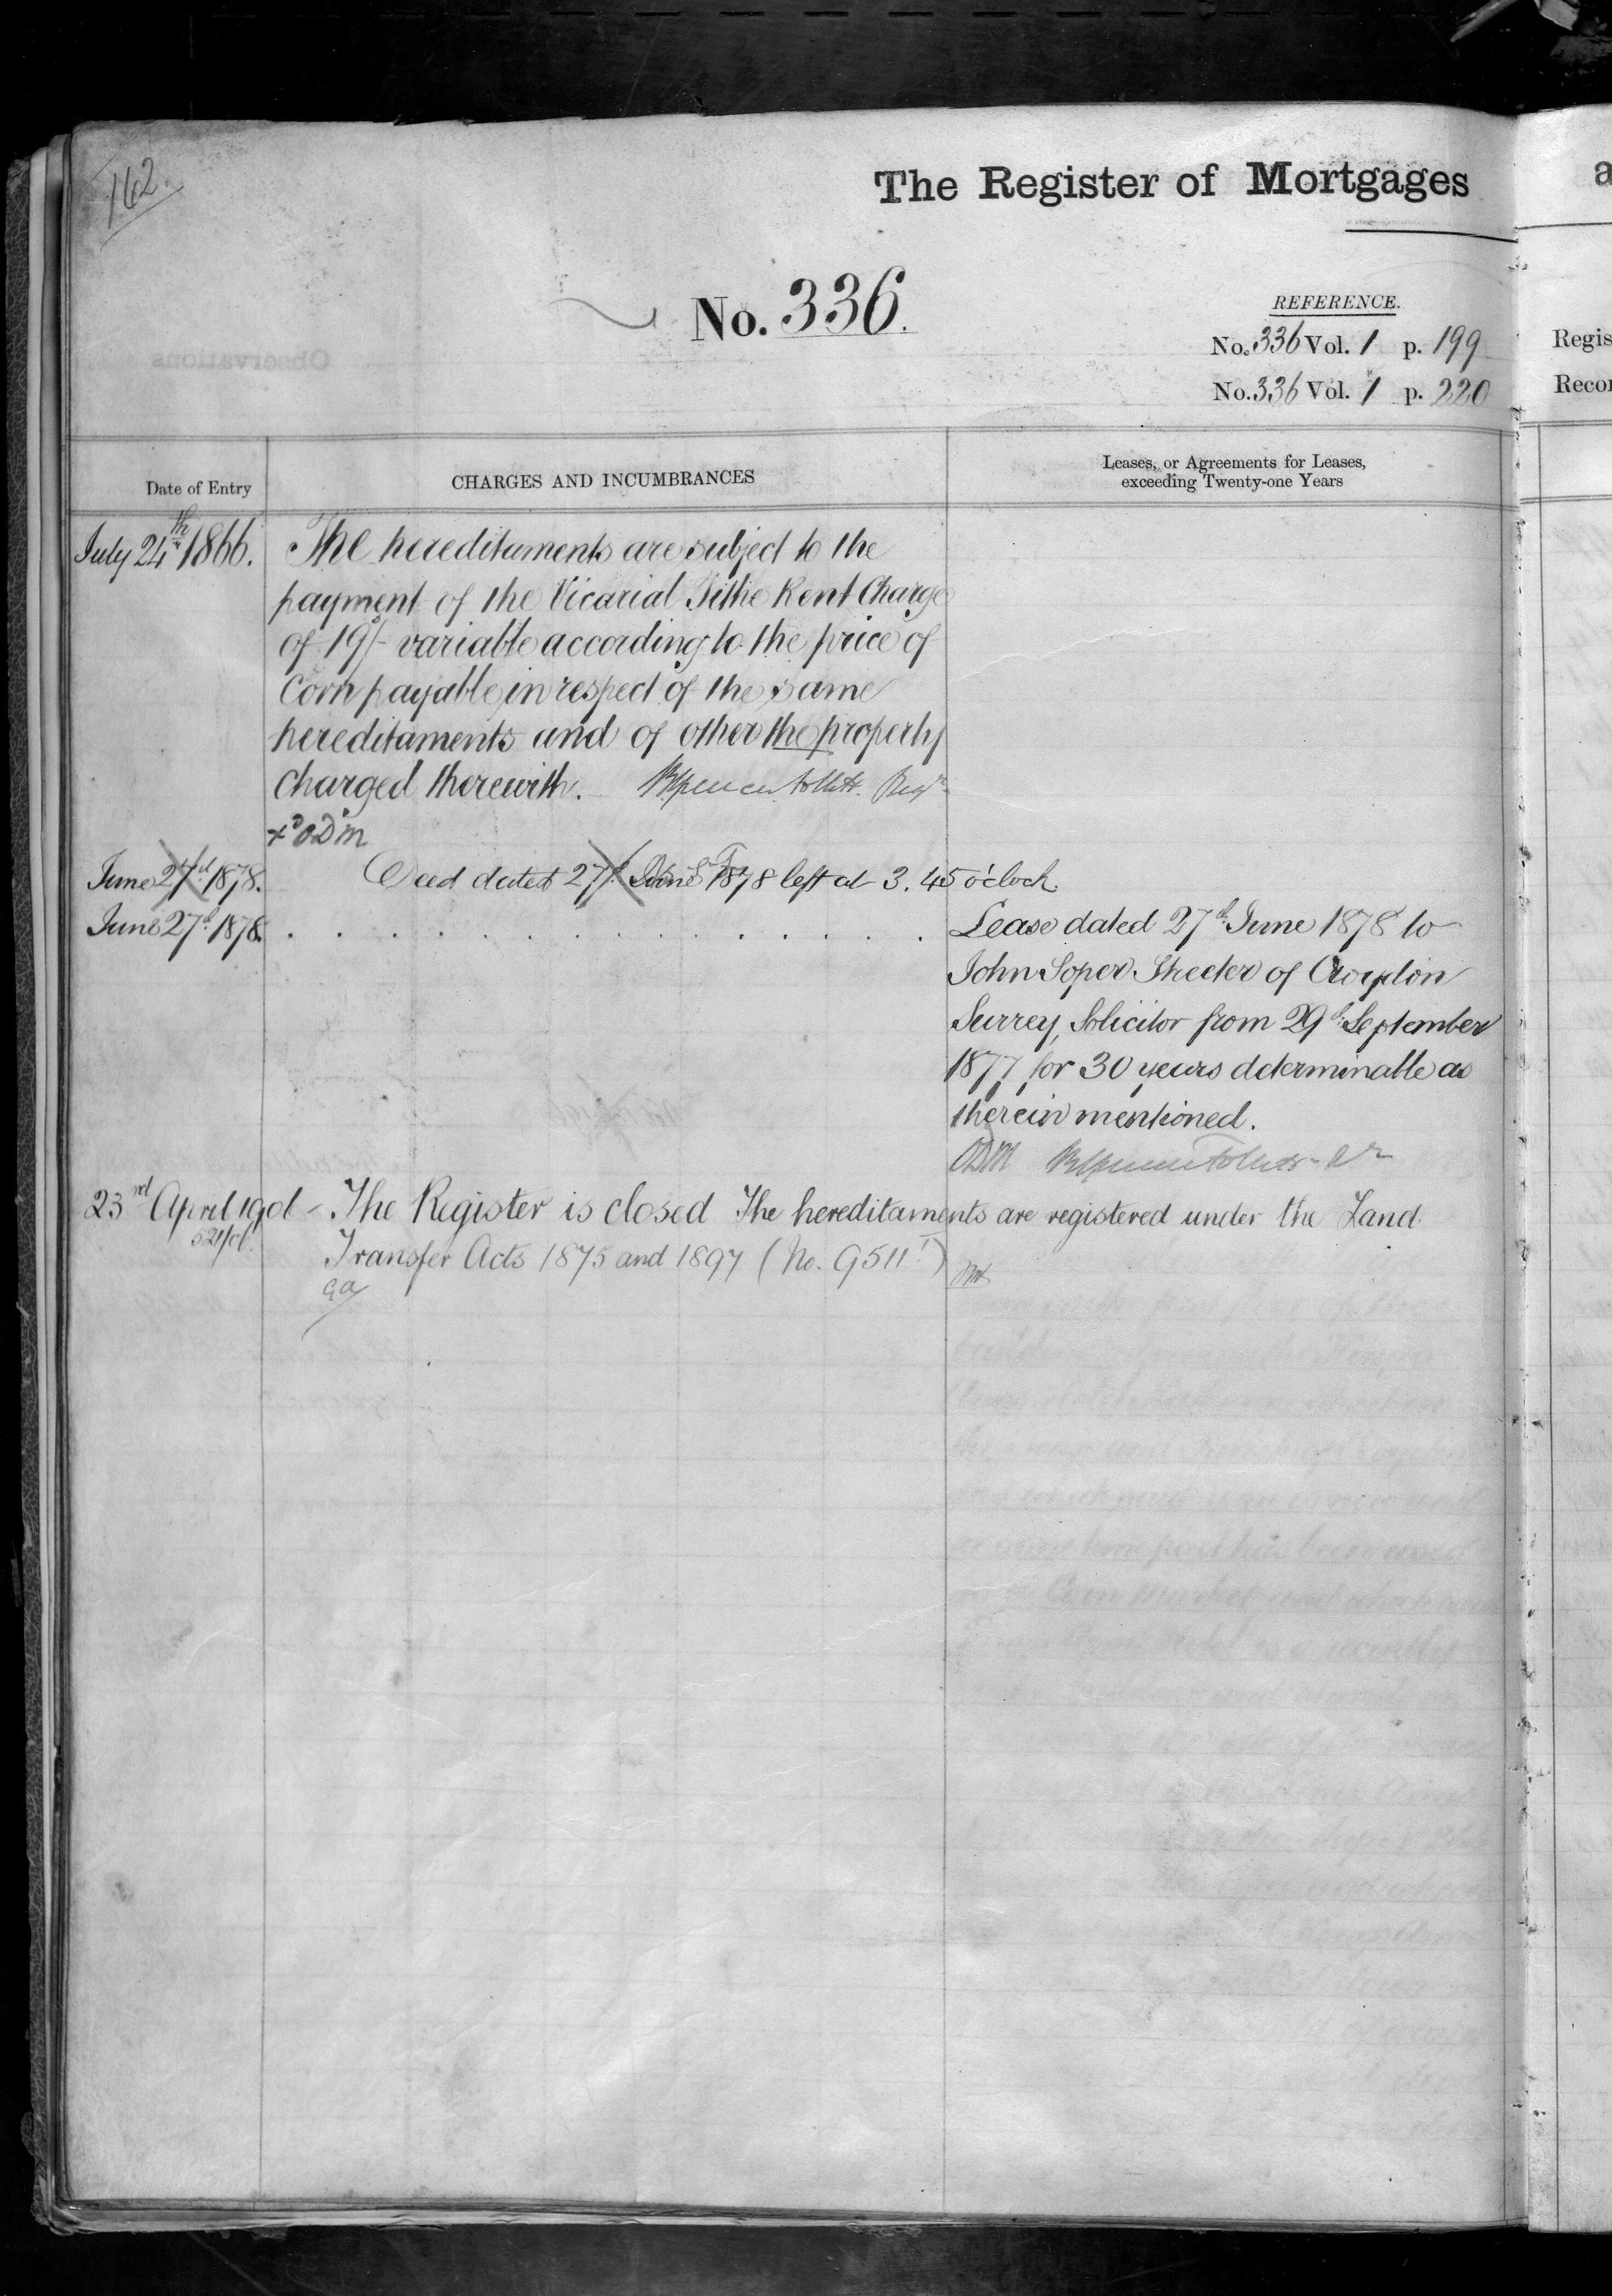 162.
The Register of Mortgages
a
No. 336.
REFERENCE.
No. 336 Vol. 1 p. 199
No. 336 Vol. 1 p. 220
Regis
Recor
Observations
Date of Entry
CHARGES AND INCUMBRANCES
Leases, or Agreements for Leases,
exceeding Twenty-one Years
July 24th 1866. The hereditaments are subject to the
payment of the Vicarial Tithe Rent Charge
of 19/- variable according to the price of
Corn payable in respect of the same
hereditaments and of other the property
charged therewith. Brent Spencer Follett. Regr
xd ODM
June 27th 1878. Deed dated 27th June 1878 left at 3.45 o'clock.
June 27th 1878. . . . . . . . . . . . . . .
Lease dated 27th June 1878 to
John Soper Streeter of Croydon
Surrey, Solicitor from 29th September
1877 for 30 years determinable as
therein mentioned.
ODM
23rd April 1906 - The Register is closed The hereditaments are registered under the Land
Transfer Acts 1875 and 1897 (No. 9511)